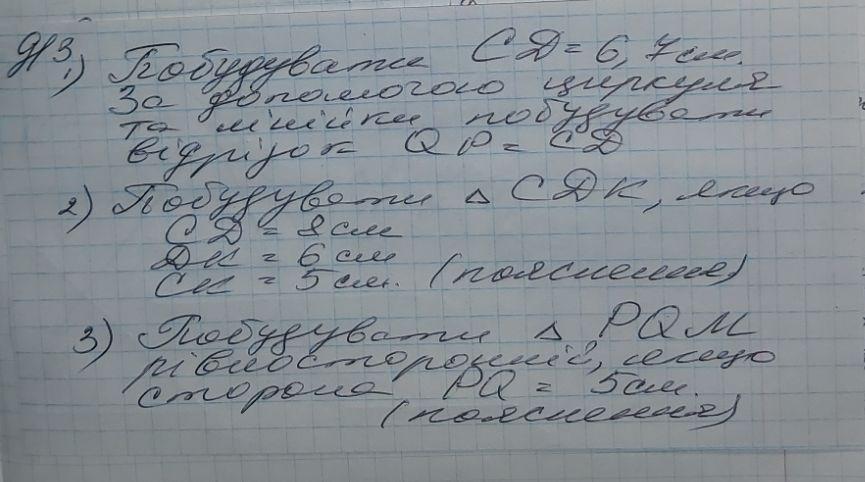 Д/З
1) Побудувати СД = 6,7 см.
За допомогою циркуля
та лінійки побудувати
відрізок QP = СД
2) Побудувати △ СДК, якщо
СД = 8 см
ДК = 6 см
СК = 5 см. (пояснення)
3) Побудувати △ PQM
рівносторонній, якщо
сторона PQ = 5 см.
(пояснення)